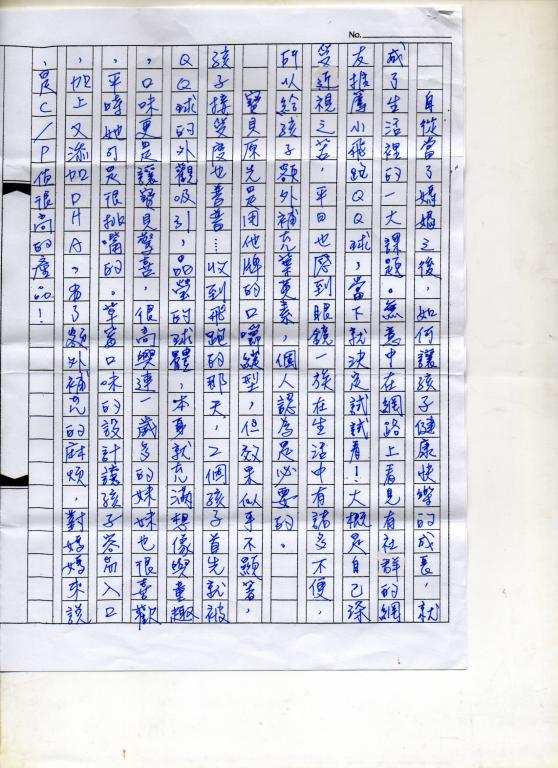 No.
自從當了媽媽之後，如何讓孩子健康快樂的成長，就
成了生活裡的一大課題。無意中在網路上看見有社群的網
友推薦小飛跑QQ球，當下就決定試試看！大概是自己深
受近視之苦，平日也感到眼鏡一族在生活中有諸多不便，
所以給孩子額外補充葉黃素，個人認為是必要的。
寶貝原先是用他牌的口嚼錠型，但效果似乎不顯著，
孩子接受度也普普……收到飛跑的那天，2個孩子首先就被
QQ球的外觀吸引，晶瑩的球體，本身就充滿想像與童趣
，口味更是讓寶貝驚喜，很高興連一歲多的妹妹也很喜歡
，平時她可是很挑嘴的。草莓口味的設計讓孩子容易入口
，加上又添加DHA，省了額外補充的麻煩，對媽媽來說
，是C/P值很高的產品！